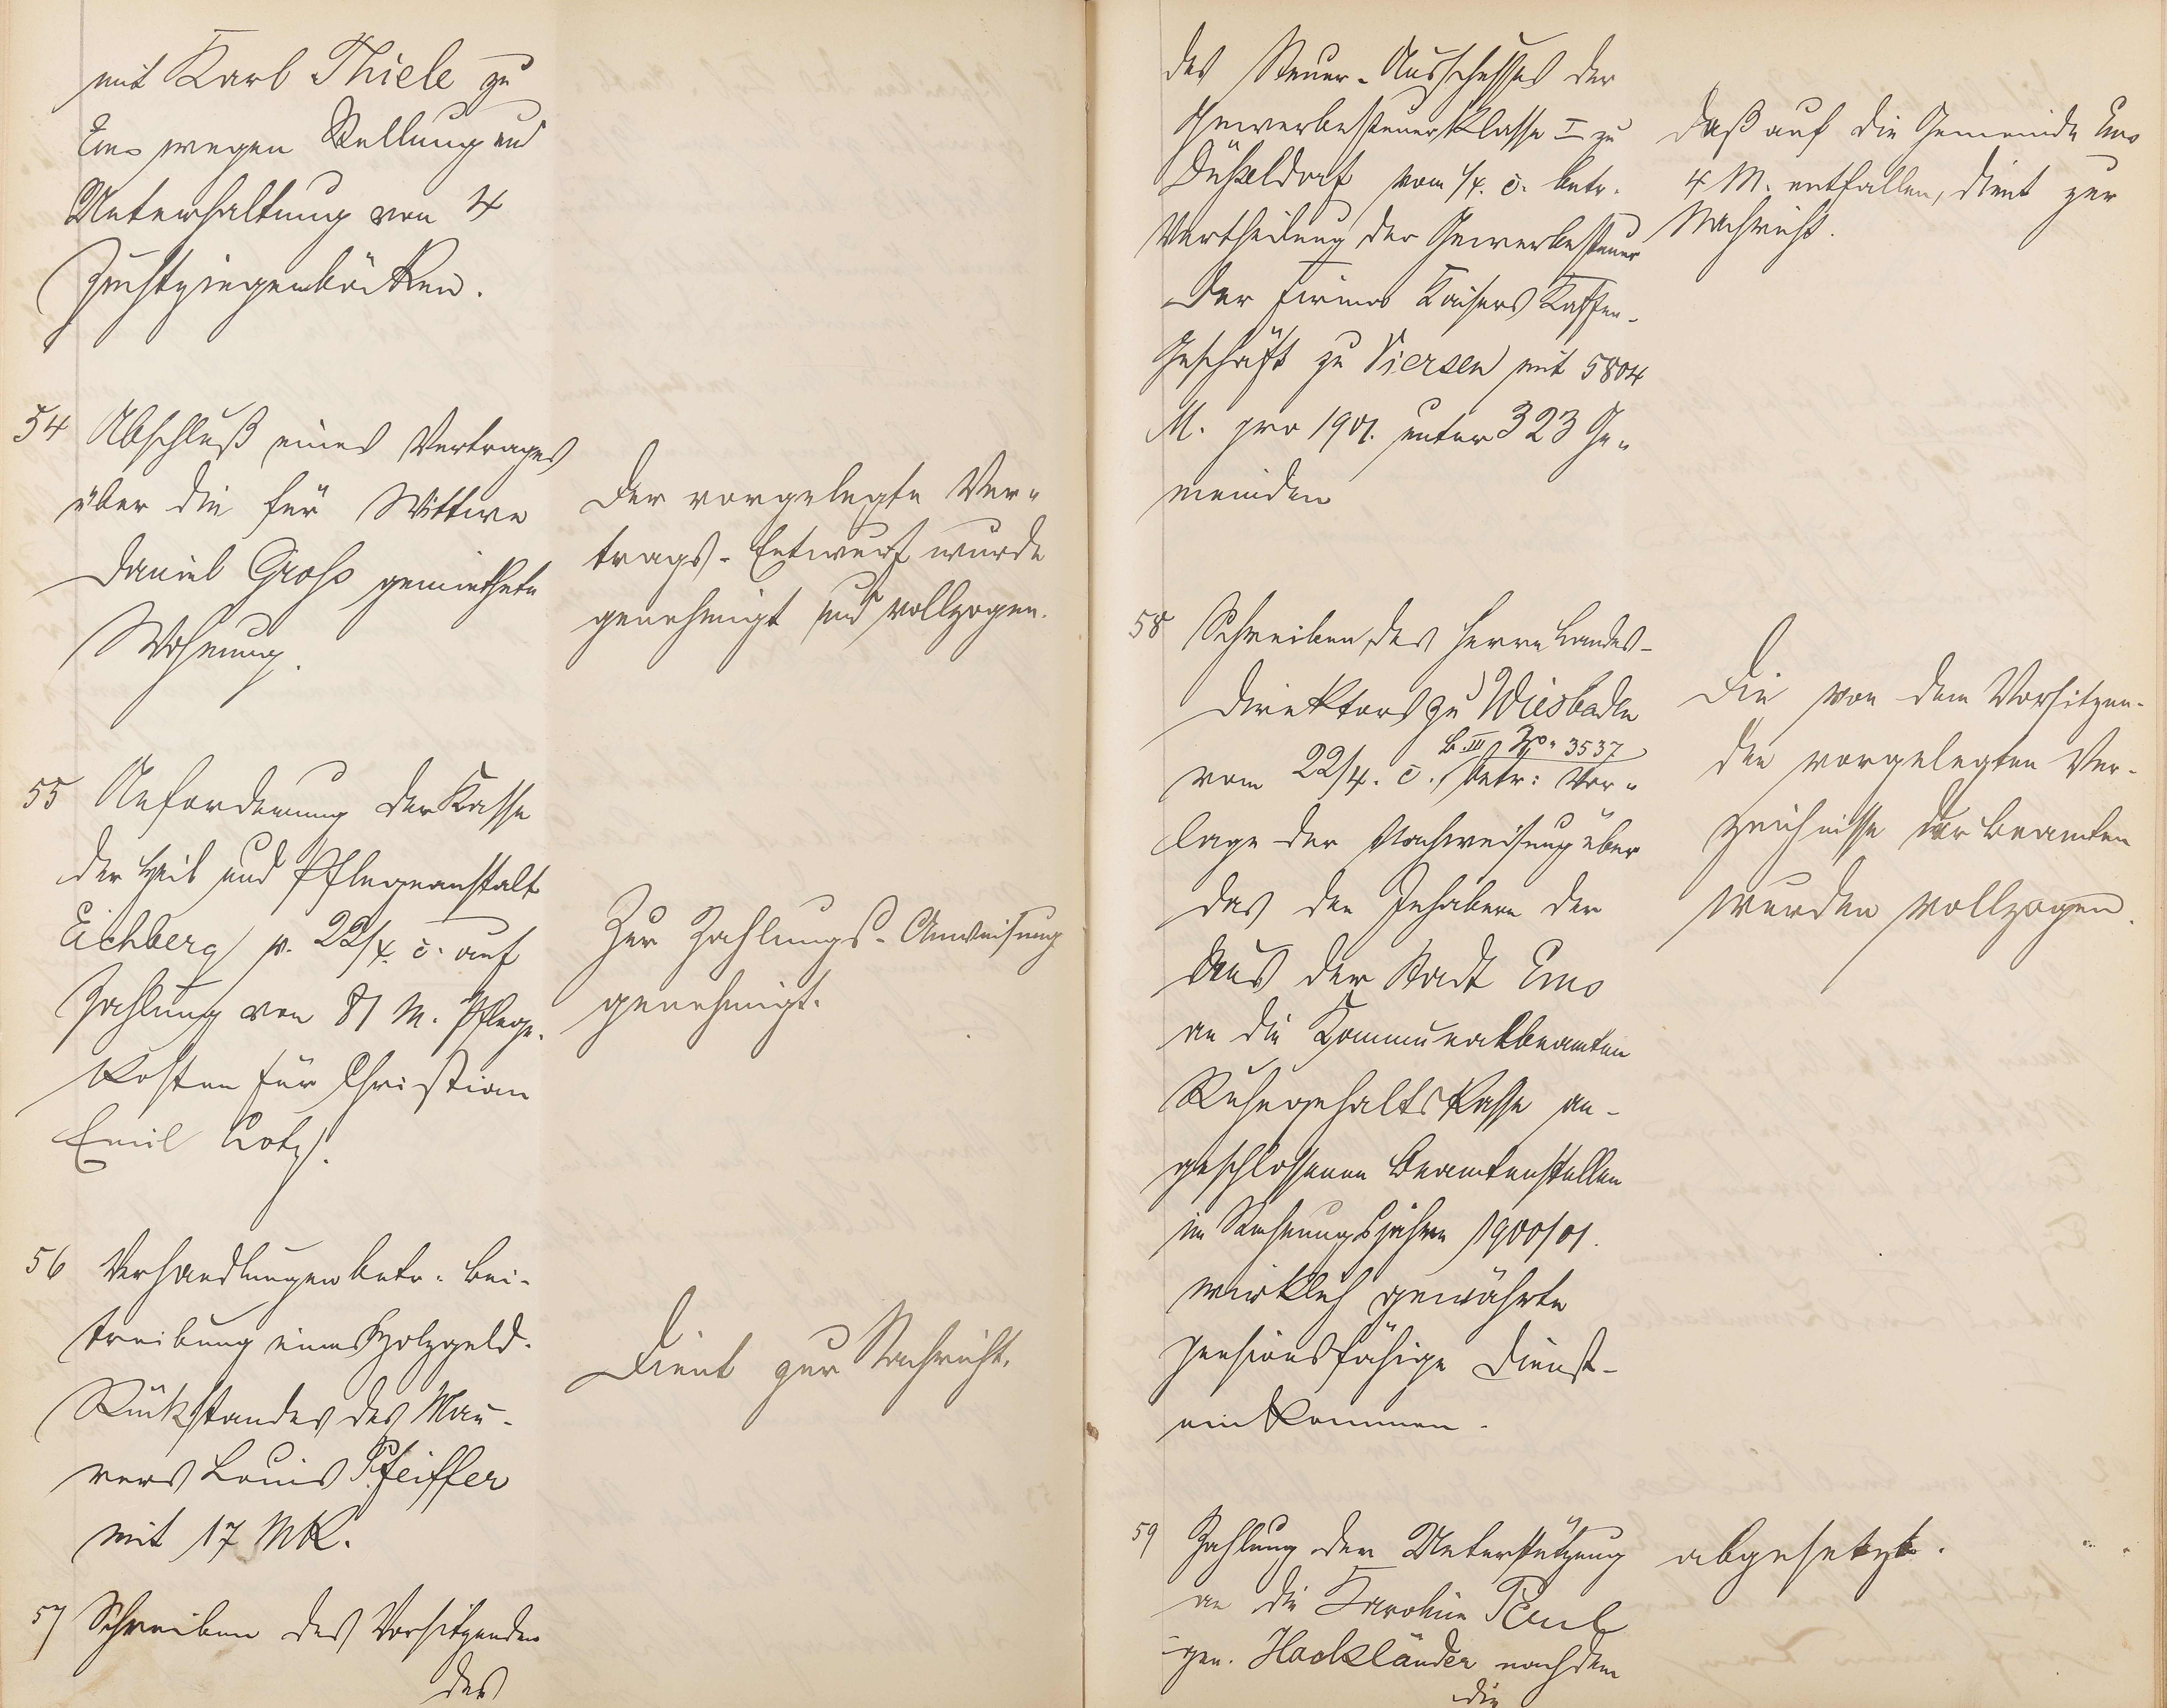 mit Karl Thiele zu
Ems wegen Stellung und
Unterhaltung von 4
Zuchtziegenböcken.
54 Abschluß eines Vertrages
über die für Wittwe
Daniel Gross gemiethete
Wohnung.
Der vorgelegte Ver-
trags-Entwurf wurde
genehmigt und vollzogen.
55 Anforderung der Kasse
der Heil und Pflegeanstalt
Eichberg v. 22/4. c. auf
Zahlung von 81 M. Pflege-
kosten für Christian
Emil Lotz.
Zur Zahlungs-Anweisung
genehmigt.
56 Verhandlungen betr. Bei-
treibung eines Holzgeld-
Rückstandes des Mau-
rers Louis Pfeiffer
mit 17 Mk.
Dient zur Nachricht.
57 Schreiben des Vorsitzenden
des
des Steuer-Ausschusses der
Gewerbesteuerklasse I zu
Düsseldorf vom 1/4. c. betr.
Vertheilung der Gewerbesteuer
der Firma Kaisers Kaffee-
Geschäft zu Viersen mit 5804
M. pro 1901. unter 323 Ge-
meinden
Daß auf die Gemeinde Ems
4 M. entfallen, dient zur
Nachricht.
58 Schreiben des Herrn Landes-
direktors zu Wiesbaden
vom 22/4. c. betr: Vor-
lage der Nachweisung über
das den Inhabern der
aus der Stadt Ems
an die Kommunalbeamten
Ruhegehaltskasse an-
geschlossenen Beamtenstellen
im Rechnungsjahre 1900/01.
wirklich gewährte
pensionsfähige Dienst-
einkommen.
Die von dem Vorsitzen-
den vorgelegten Ver-
zeichnisse der Beamten
wurden vollzogen.
59 Zahlung der Unterstützung
an die Karoline Paul
gen. Hackländer nachdem
die
abgesetzt.